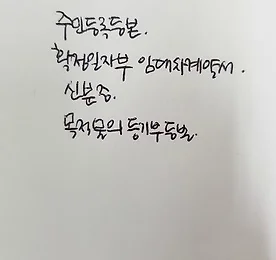 주민등록등본.
확정일자부 임대차계약서.
신분증.
목적물의 등기부등본.